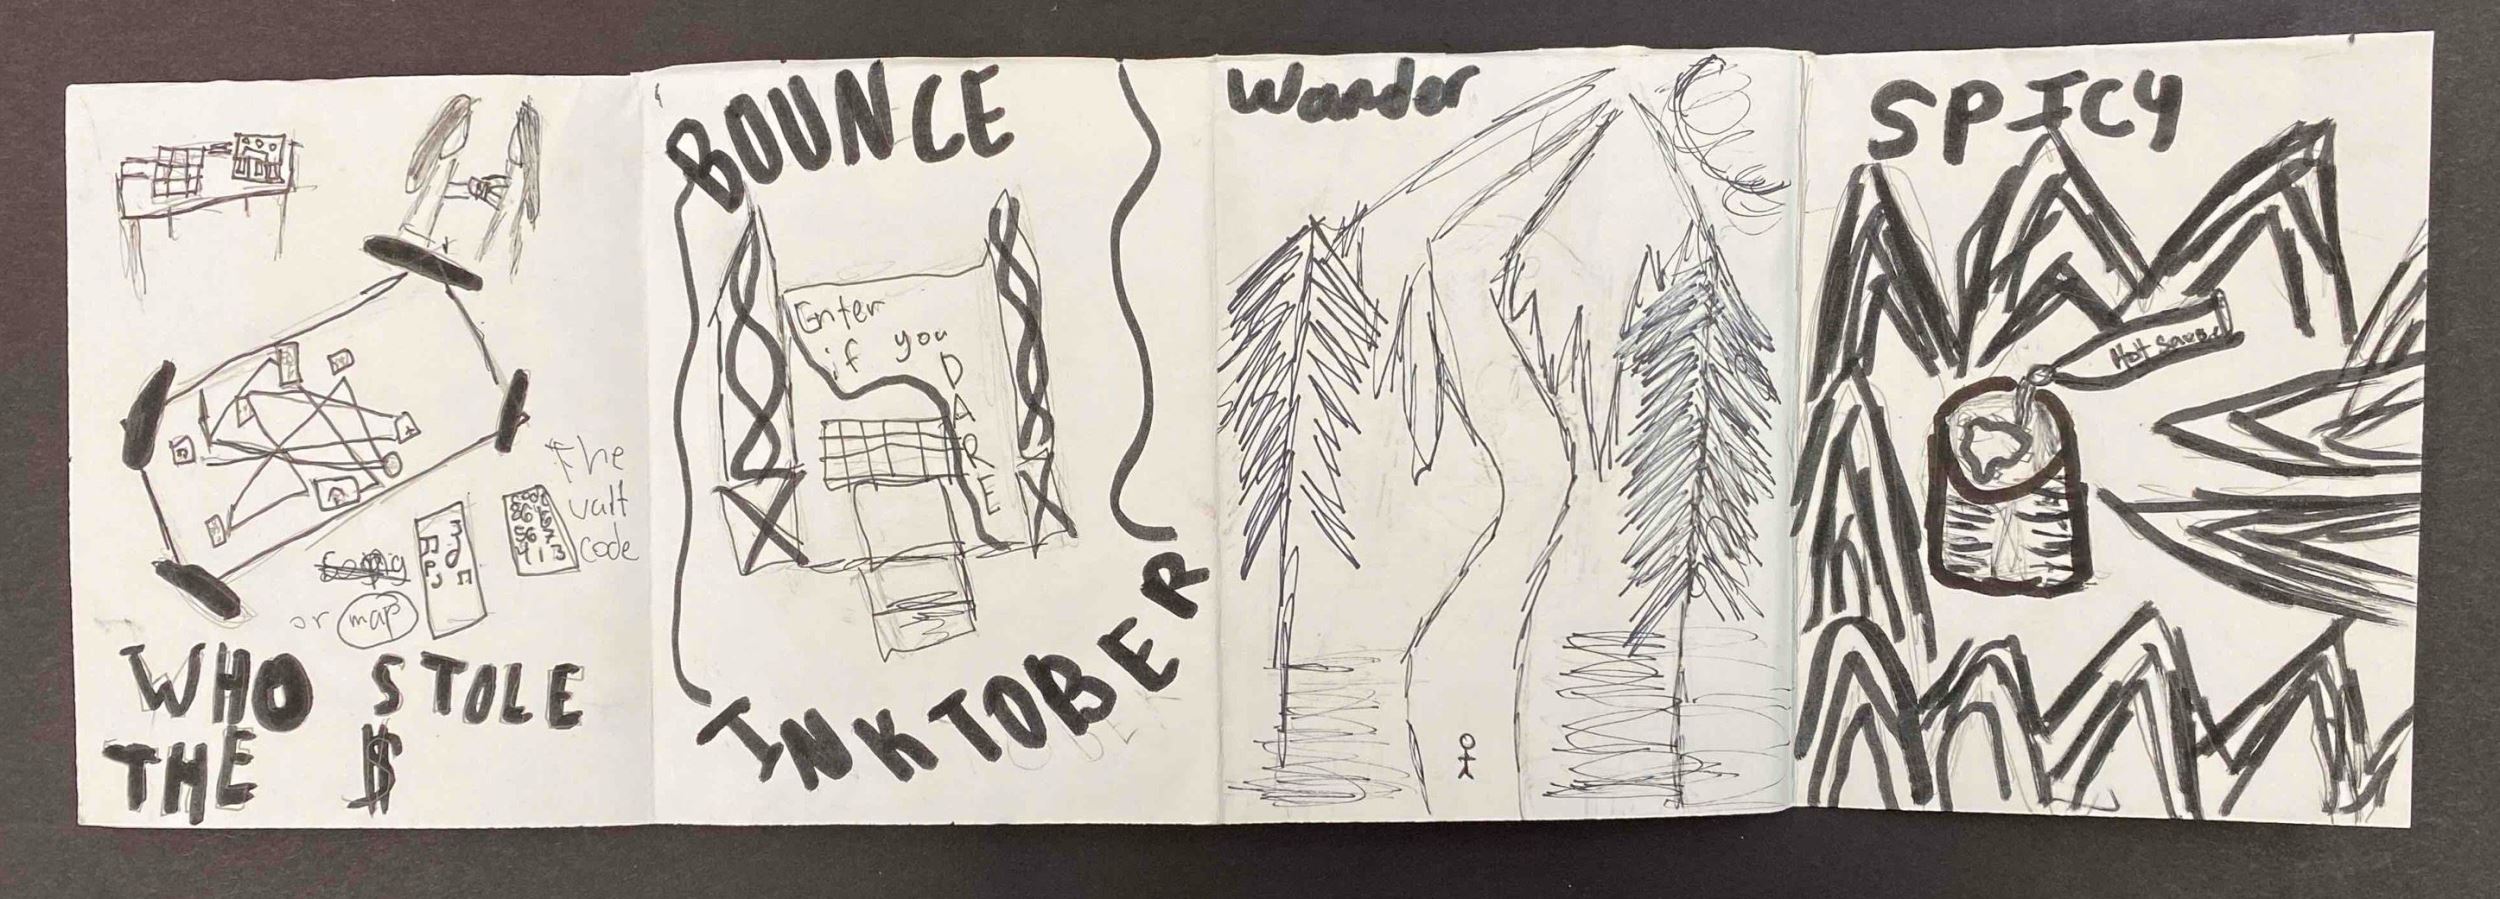 The
valt
code
or map
WHO STOLE
THE $
BOUNCE
Enter
if you
DARE
INKTOBER
Wander
SPICY
Hot Sauce